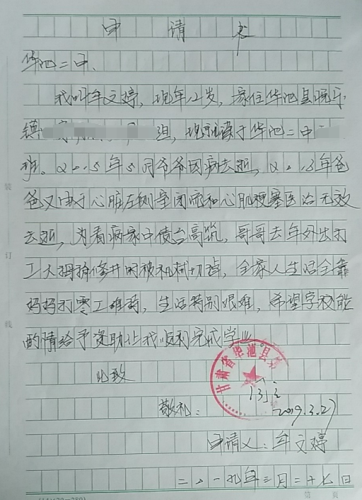 申请书
华池二中
我叫车文婷，现年12岁，家住华池县悦乐
镇 组，现就读于华池二中
班。2015年5月爷爷因病去逝，2013年爸
爸又由于心脏左侧室闭而和心肌梗塞医治无效
去逝，为看病家中债台高筑，哥哥去年外出打
工大拇指修井时被机械切掉，全家人生活全靠
妈妈打零工维持，生活特别艰难，希望学校能
的请给予资助让我顺利完成学业。
此致
敬礼：
甘肃省华池县
2019.3.27
申请人：车文婷
二〇一九年三月二十七日